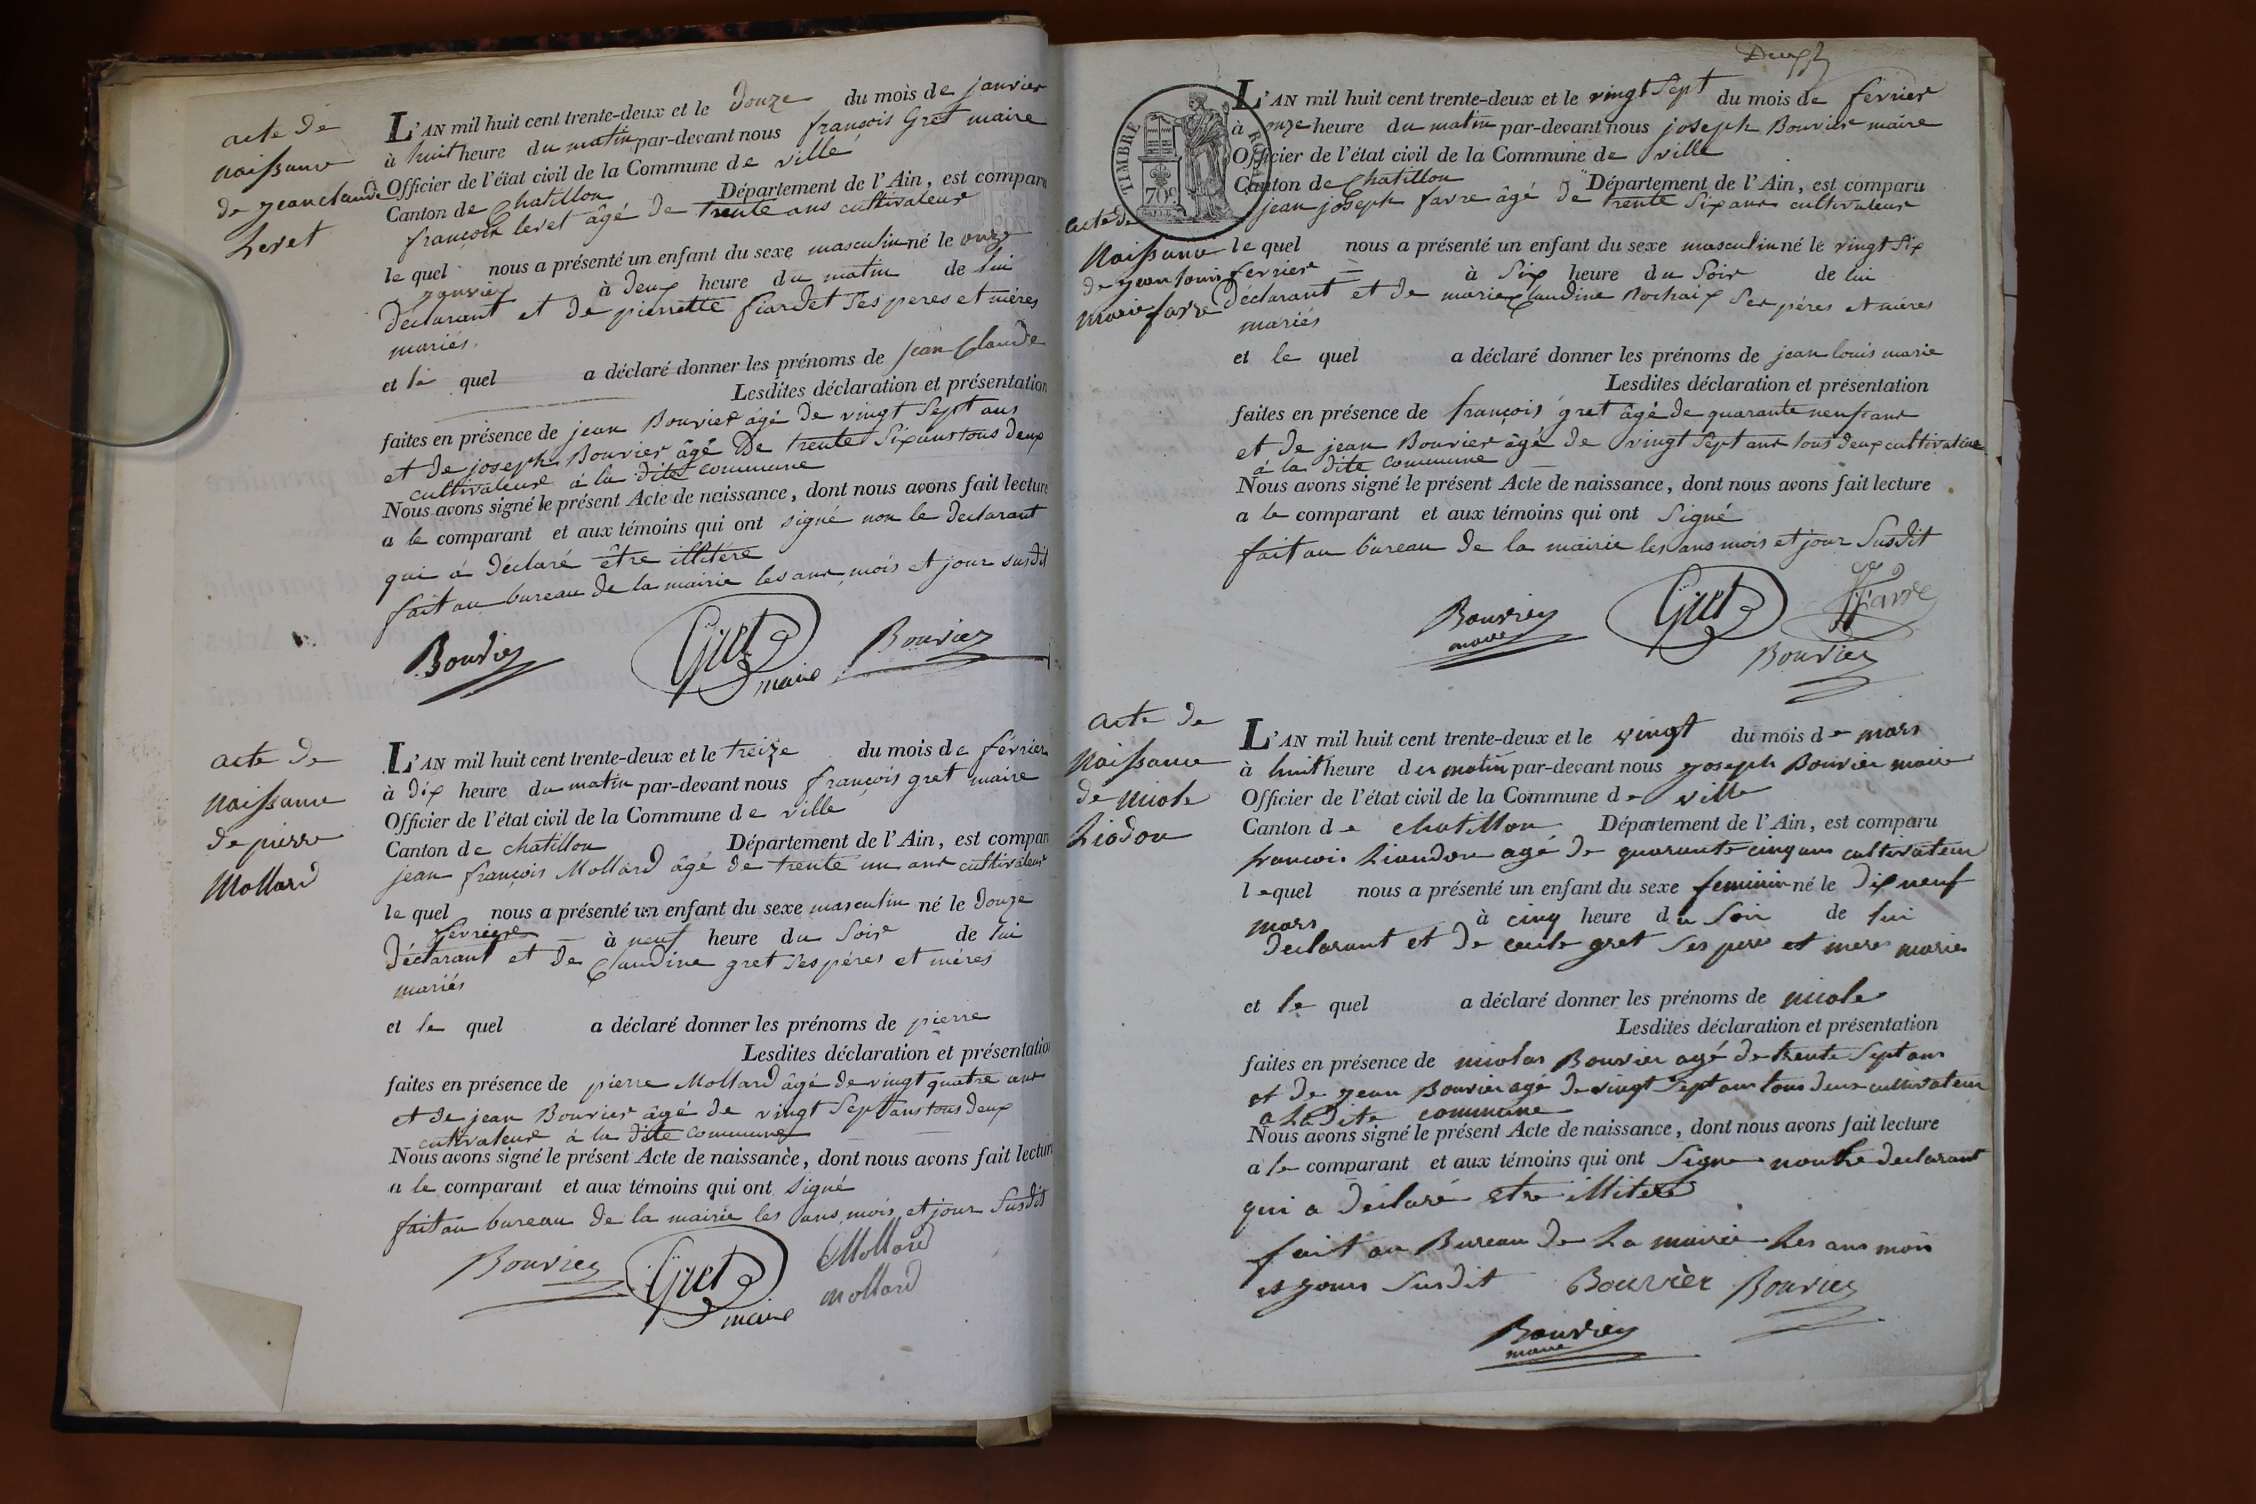 acte de
naissance
de jean claude
Levet
L'AN mil huit cent trente-deux et le douze du mois de janvier
à huit heure du matin par-devant nous françois Gret maire
Officier de l'état civil de la Commune de ville
Canton de Chatillon Département de l'Ain, est comparu
françois levet âgé de trente ans cultivateur
le quel nous a présenté un enfant du sexe masculin né le onze
janvier à deux heure du matin de lui
déclarant et de pierrette fiardet ses peres et mères
mariés.
et le quel a déclaré donner les prénoms de jean Claude
Lesdites déclaration et présentation
faites en présence de jean Bouvier âgé de vingt sept ans
et de joseph Bouvier âgé De trente six ans tous deux
cultivateur à la dite commune
Nous avons signé le présent Acte de naissance, dont nous avons fait lecture
a le comparant et aux témoins qui ont signé non le declarant
qui a déclaré être illitére
fait au bureau de la mairie les ans, mois et jour susdit
Bouvier Gret maire Bouvier
acte de
naissance
de pierre
Mollard
L'AN mil huit cent trente-deux et le treize du mois de février
à dix heure du matin par-devant nous françois gret maire
Officier de l'état civil de la Commune de ville
Canton de chatillon Département de l'Ain, est comparu
jean françois Mollard âgé de trente un ans cultivateur
le quel nous a présenté un enfant du sexe masculin né le douze
fevrier à neuf heure du soir de lui
déclarant et de Claudine gret ses péres et méres
mariés
et le quel a déclaré donner les prénoms de pierre
Lesdites déclaration et présentation
faites en présence de pierre Mollard âgé de vingt quatre ans
et de jean Bouvier âgé de vingt sept ans tous deux
cutivateur à la dite commune
Nous avons signé le présent Acte de naissance, dont nous avons fait lecture
a le comparant et aux témoins qui ont signé
fait au bureau de la mairie les ans, mois, et jour susdit
Bouvier Gret maire Mollard
mollard
TIMBRE ROYAL
70c
acte de
naissance
de jean louis
marie favre
L'AN mil huit cent trente-deux et le vingt sept du mois de février
à onze heure du matin par-devant nous joseph Bouvier maire
Officier de l'état civil de la Commune de ville
Canton de Chatillon Département de l'Ain, est comparu
jean joseph favre âgé de trente six ans cultivateur
le quel nous a présenté un enfant du sexe masculin né le vingt six
fevrier à six heure du soir de lui
déclarant et de marie Claudine Rochaix ses péres et méres
mariés
et le quel a déclaré donner les prénoms de jean louis marie
Lesdites déclaration et présentation
faites en présence de françois gret âgé de quarante neuf ans
et de jean Bouvier âgé de vingt sept ans tous deux cultivateur
à la dite commune
Nous avons signé le présent Acte de naissance, dont nous avons fait lecture
a le comparant et aux témoins qui ont signé
fait au bureau de la mairie les ans mois et jour susdit
Bouvier maire Gret Favre
Bouvier
acte de
naissance
de nicole
Liodon
L'AN mil huit cent trente-deux et le vingt du mois de mars
à huit heure du matin par-devant nous joseph Bouvier maire
Officier de l'état civil de la Commune de ville
Canton de chatillon Département de l'Ain, est comparu
francois Liaudon agé de quarante cinq ans cultivateur
lequel nous a présenté un enfant du sexe feminin né le dix neuf
mars à cinq heure du soir de lui
declarant et de cecile gret ses pere et mere mariés
et le quel a déclaré donner les prénoms de nicole
Lesdites déclaration et présentation
faites en présence de nicolas Bouvier agé de trente sept ans
et de jean Bouvier agé de vingt sept ans tous deux cultivateur
a la dite commune
Nous avons signé le présent Acte de naissance, dont nous avons fait lecture
a le comparant et aux témoins qui ont signe non le declarant
qui a déclaré etre illitere
fait au Bureau de La mairie Les ans mois
et jour susdit Bouvièr Bouvier
Bouvier
maire